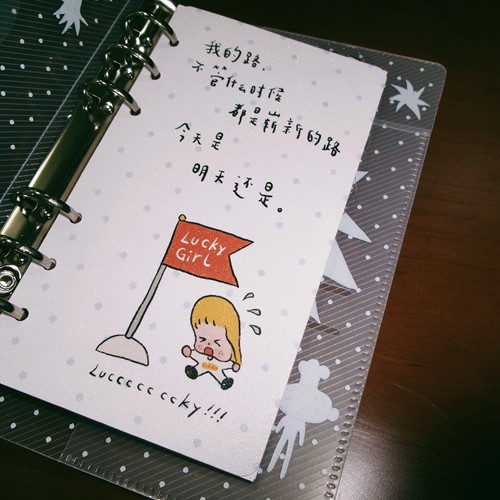 我的路.
不管什么时候
都是崭新的路
今天是
明天还是。
Lucky
Girl
Luccccc ccky!!!